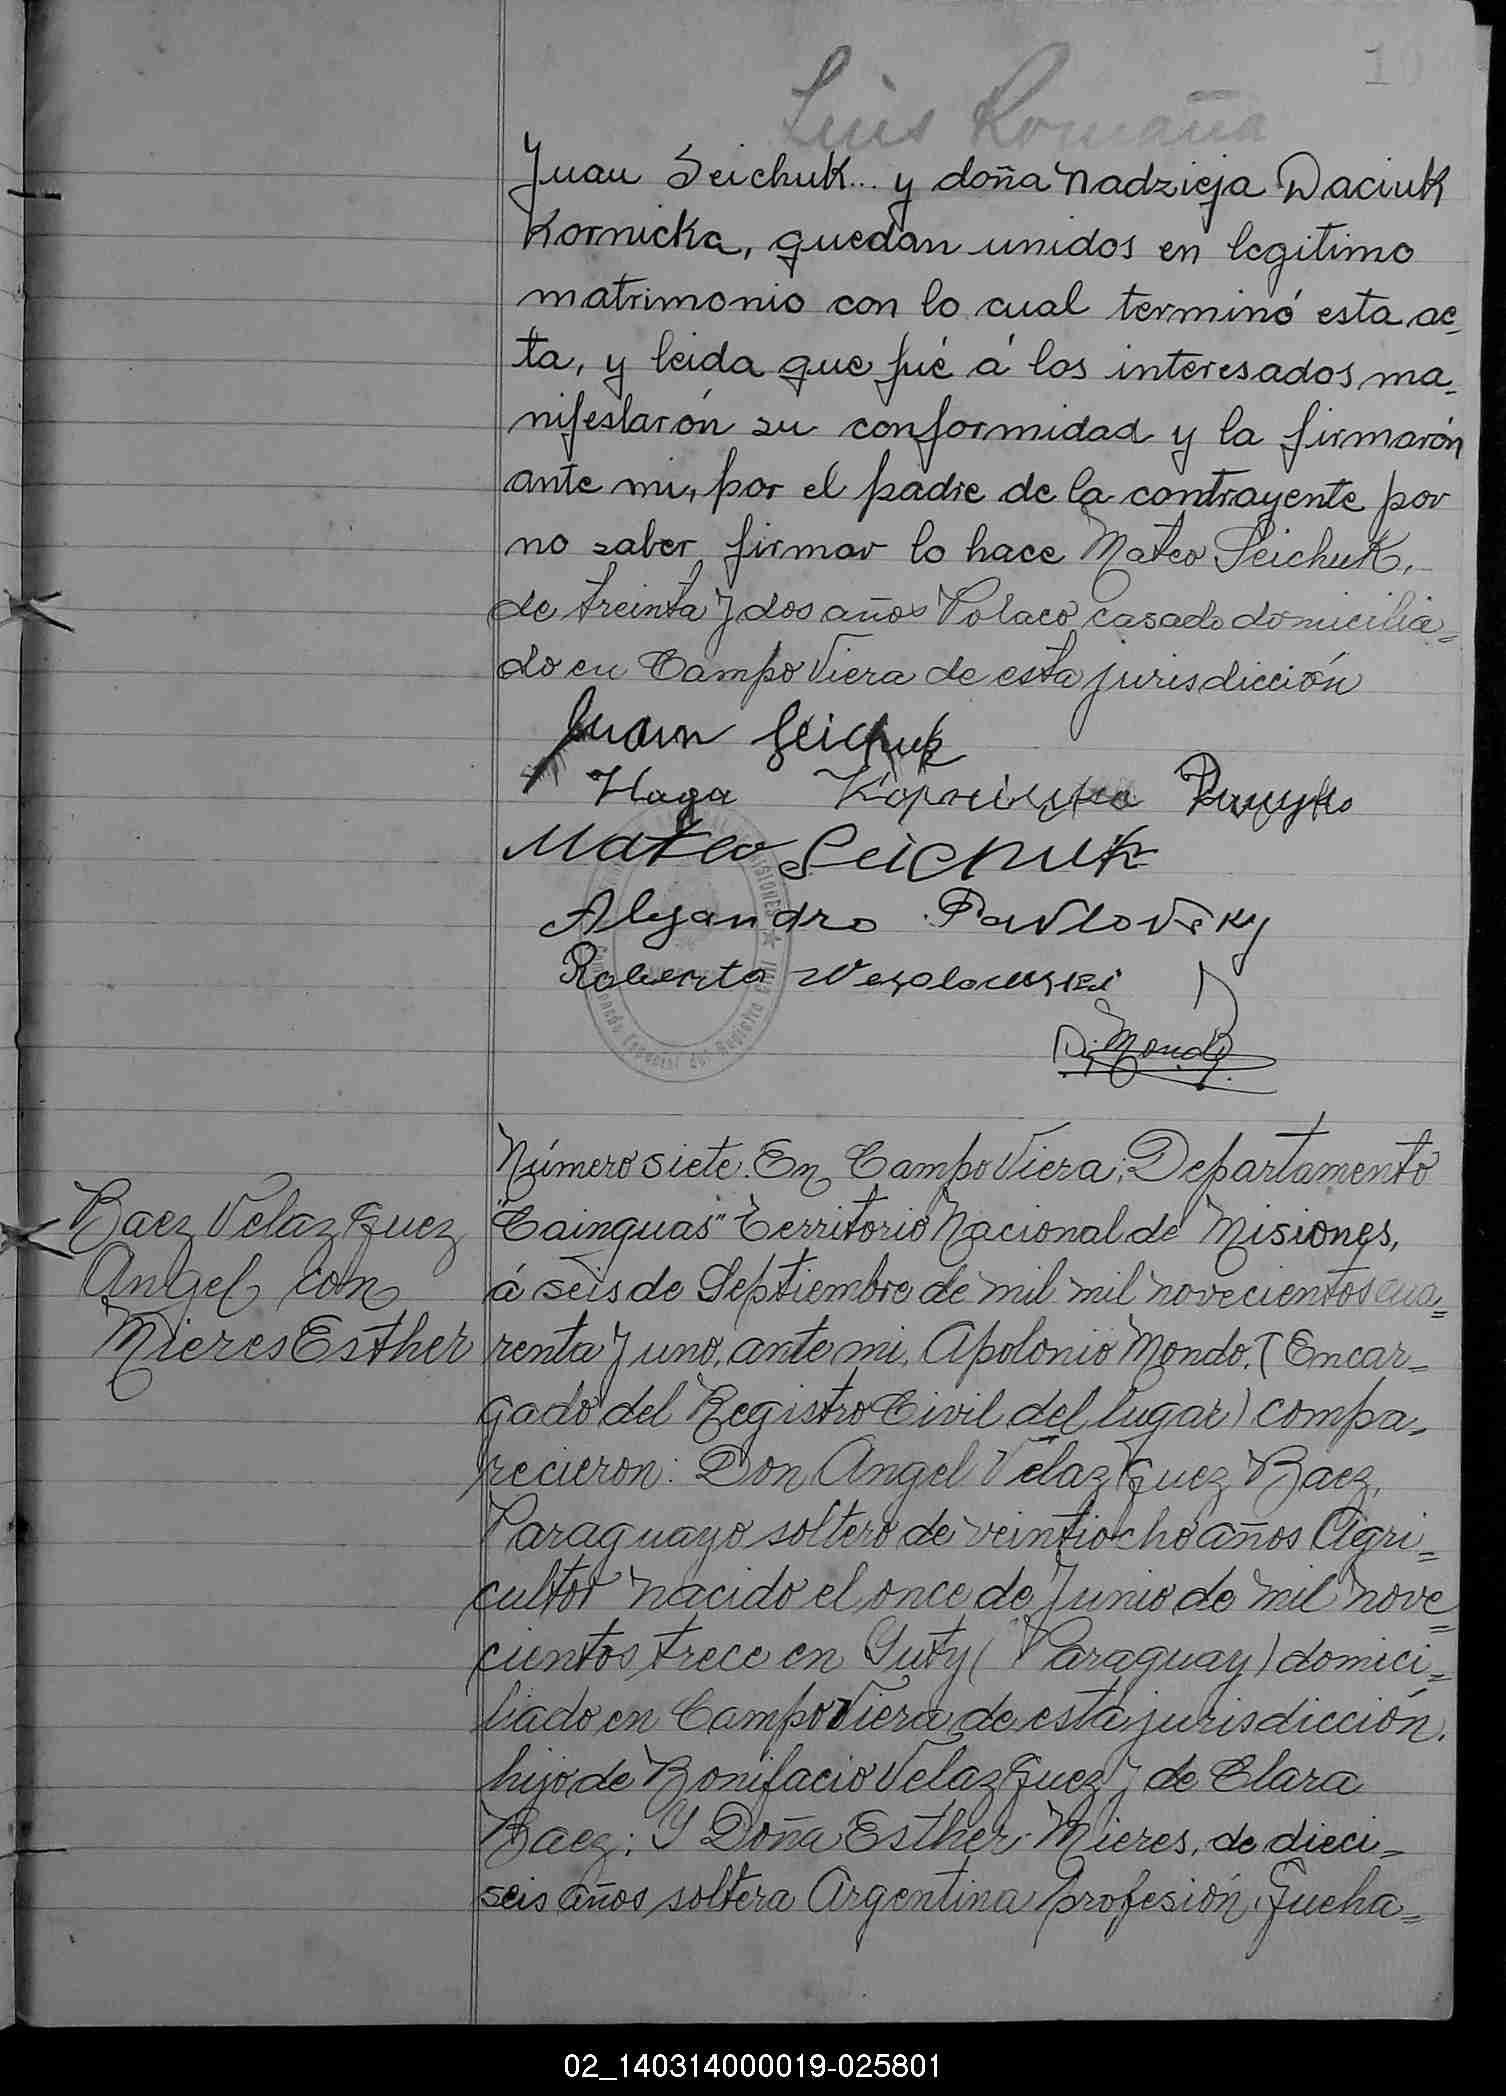 10
Luis Romaña
Juan Seichuk... y doña Nadzieja Daciuk
Kornicka, quedan unidos en legitimo
matrimonio con lo cual terminó esta ac-
ta, y leida que fué á los interesados ma-
nifestarón su conformidad y la firmarón
ante mi, por el padre de la contrayente por
no saber firmar lo hace Mateo Seichuk,
de treinta y dos años Polaco casado domicilia=
do en Campo Viera de esta jurisdicción
Juan Seichuk
Mateo Seichuk
Alejandro Pavlovsky
Roberto Wesolowski
Mondo
Número siete. En Campo Viera; Departamento
Baez Velazquez
Angel con
Mieres Esther
"Cainguas" Territorio Nacional de Misiones,
á seis de Septiembre de mil mil novecientos cua=
renta y uno, ante mi, Apolonio Mondo, (Encar=
gado del Registro Civil del lugar) compa=
recieron: Don Angel Velazquez Baez,
Paraguayo soltero de veintiocho años Agri=
cultor nacido el once de Junio de mil nove=
cientos trece en Yuty (Paraguay) domici=
liado en Campo Viera de esta jurisdicción.
hijo de Bonifacio Velazquez y de Clara
Baez; Y Doña Esther Mieres, de dieci=
seis años soltera Argentina profesión Queha=
02_140314000019-025801